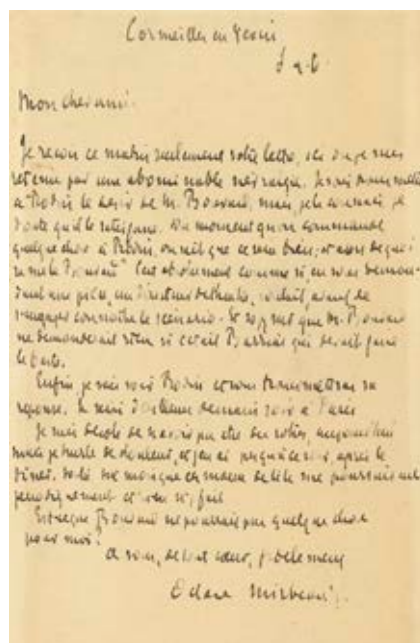 Cormeilles en Vexin
S et O
Mon cher ami.
Je reçois ce matin seulement votre lettre, ici où je suis
retenu par une abominable névralgie. Je vais transmettre
à Rodin le désir de M. mais, je le connais, je
doute qu'il le satisfasse. Du moment qu'on commande
quelque chose à Rodin, on sait que ce sera bien; et alors de quoi
se mêle C'est absolument comme si, en vous deman-
dant une pièce, un directeur de théâtre, voulait, avant de
s'engager connaître le scénario. Et voyez que M.
ne demanderait rien si c'était qui devait faire
le buste.
Enfin je vais voir Rodin et vous transmettrai sa
réponse. Je serai d'ailleurs demain soir à Paris
Je suis désolé de n'avoir pu être des vôtres, aujourd'hui
mais je hurle de douleur, et j'en ai jusqu'à ce soir, après le
dîner. Voilà que ces maux de tête me poursuivent
périodiquement
Est-ce que ne pourrait pas quelque chose
pour moi?
A vous, de tout cœur,
Octave Mirbeau